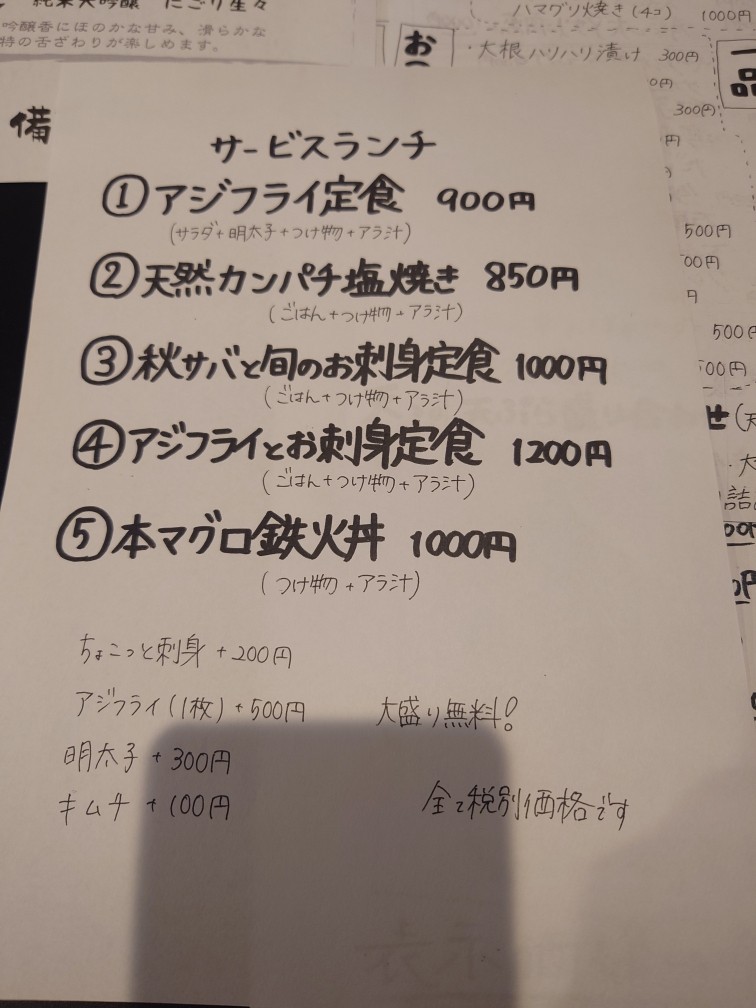 純米大吟醸 にごり生々
吟醸香にほのかな甘み、滑らかな
特の舌ざわりが楽しめます。
備
ハマグリ焼き(4コ) 1000円
・大根ハリハリ漬け 300円
300円
500円
500円
サービスランチ
①アジフライ定食 900円
(サラダ+明太子+つけ物+アラ汁)
②天然カンパチ塩焼き 850円
(ごはん+つけ物+アラ汁)
③秋サバと旬のお刺身定食 1000円
(ごはん+つけ物+アラ汁)
④アジフライとお刺身定食 1200円
(ごはん+つけ物+アラ汁)
⑤本マグロ鉄火丼 1000円
(つけ物+アラ汁)
ちょこっと刺身 +200円
アジフライ(1枚)+500円
大盛り無料!
明太子+300円
キムチ+100円
全て税別価格です